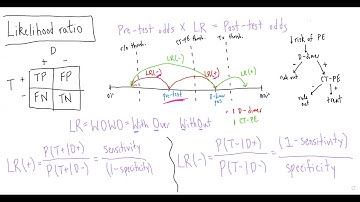 Likelihood ratio
Pre-test odds X LR = Post-test odds
D
+ -
T + TP FP
- FN TN
r/o thresh.
CT-PE thresh.
Tx thresh.
LR(-)
LR(-)
LR(+)
LR(+)
0%
Pre-test
D-dimer
pos
100%
↓ risk of PE
D-dimer
- +
rule out
CT-PE
- +
rule out
treat
1 D-dimer
1 CT-PE
LR = WOWO = With Over WithOut
LR(+) = P(T+|D+) / P(T+|D-) = sensitivity / (1-specificity)
LR(-) = P(T-|D+) / P(T-|D-) = (1-sensitivity) / specificity